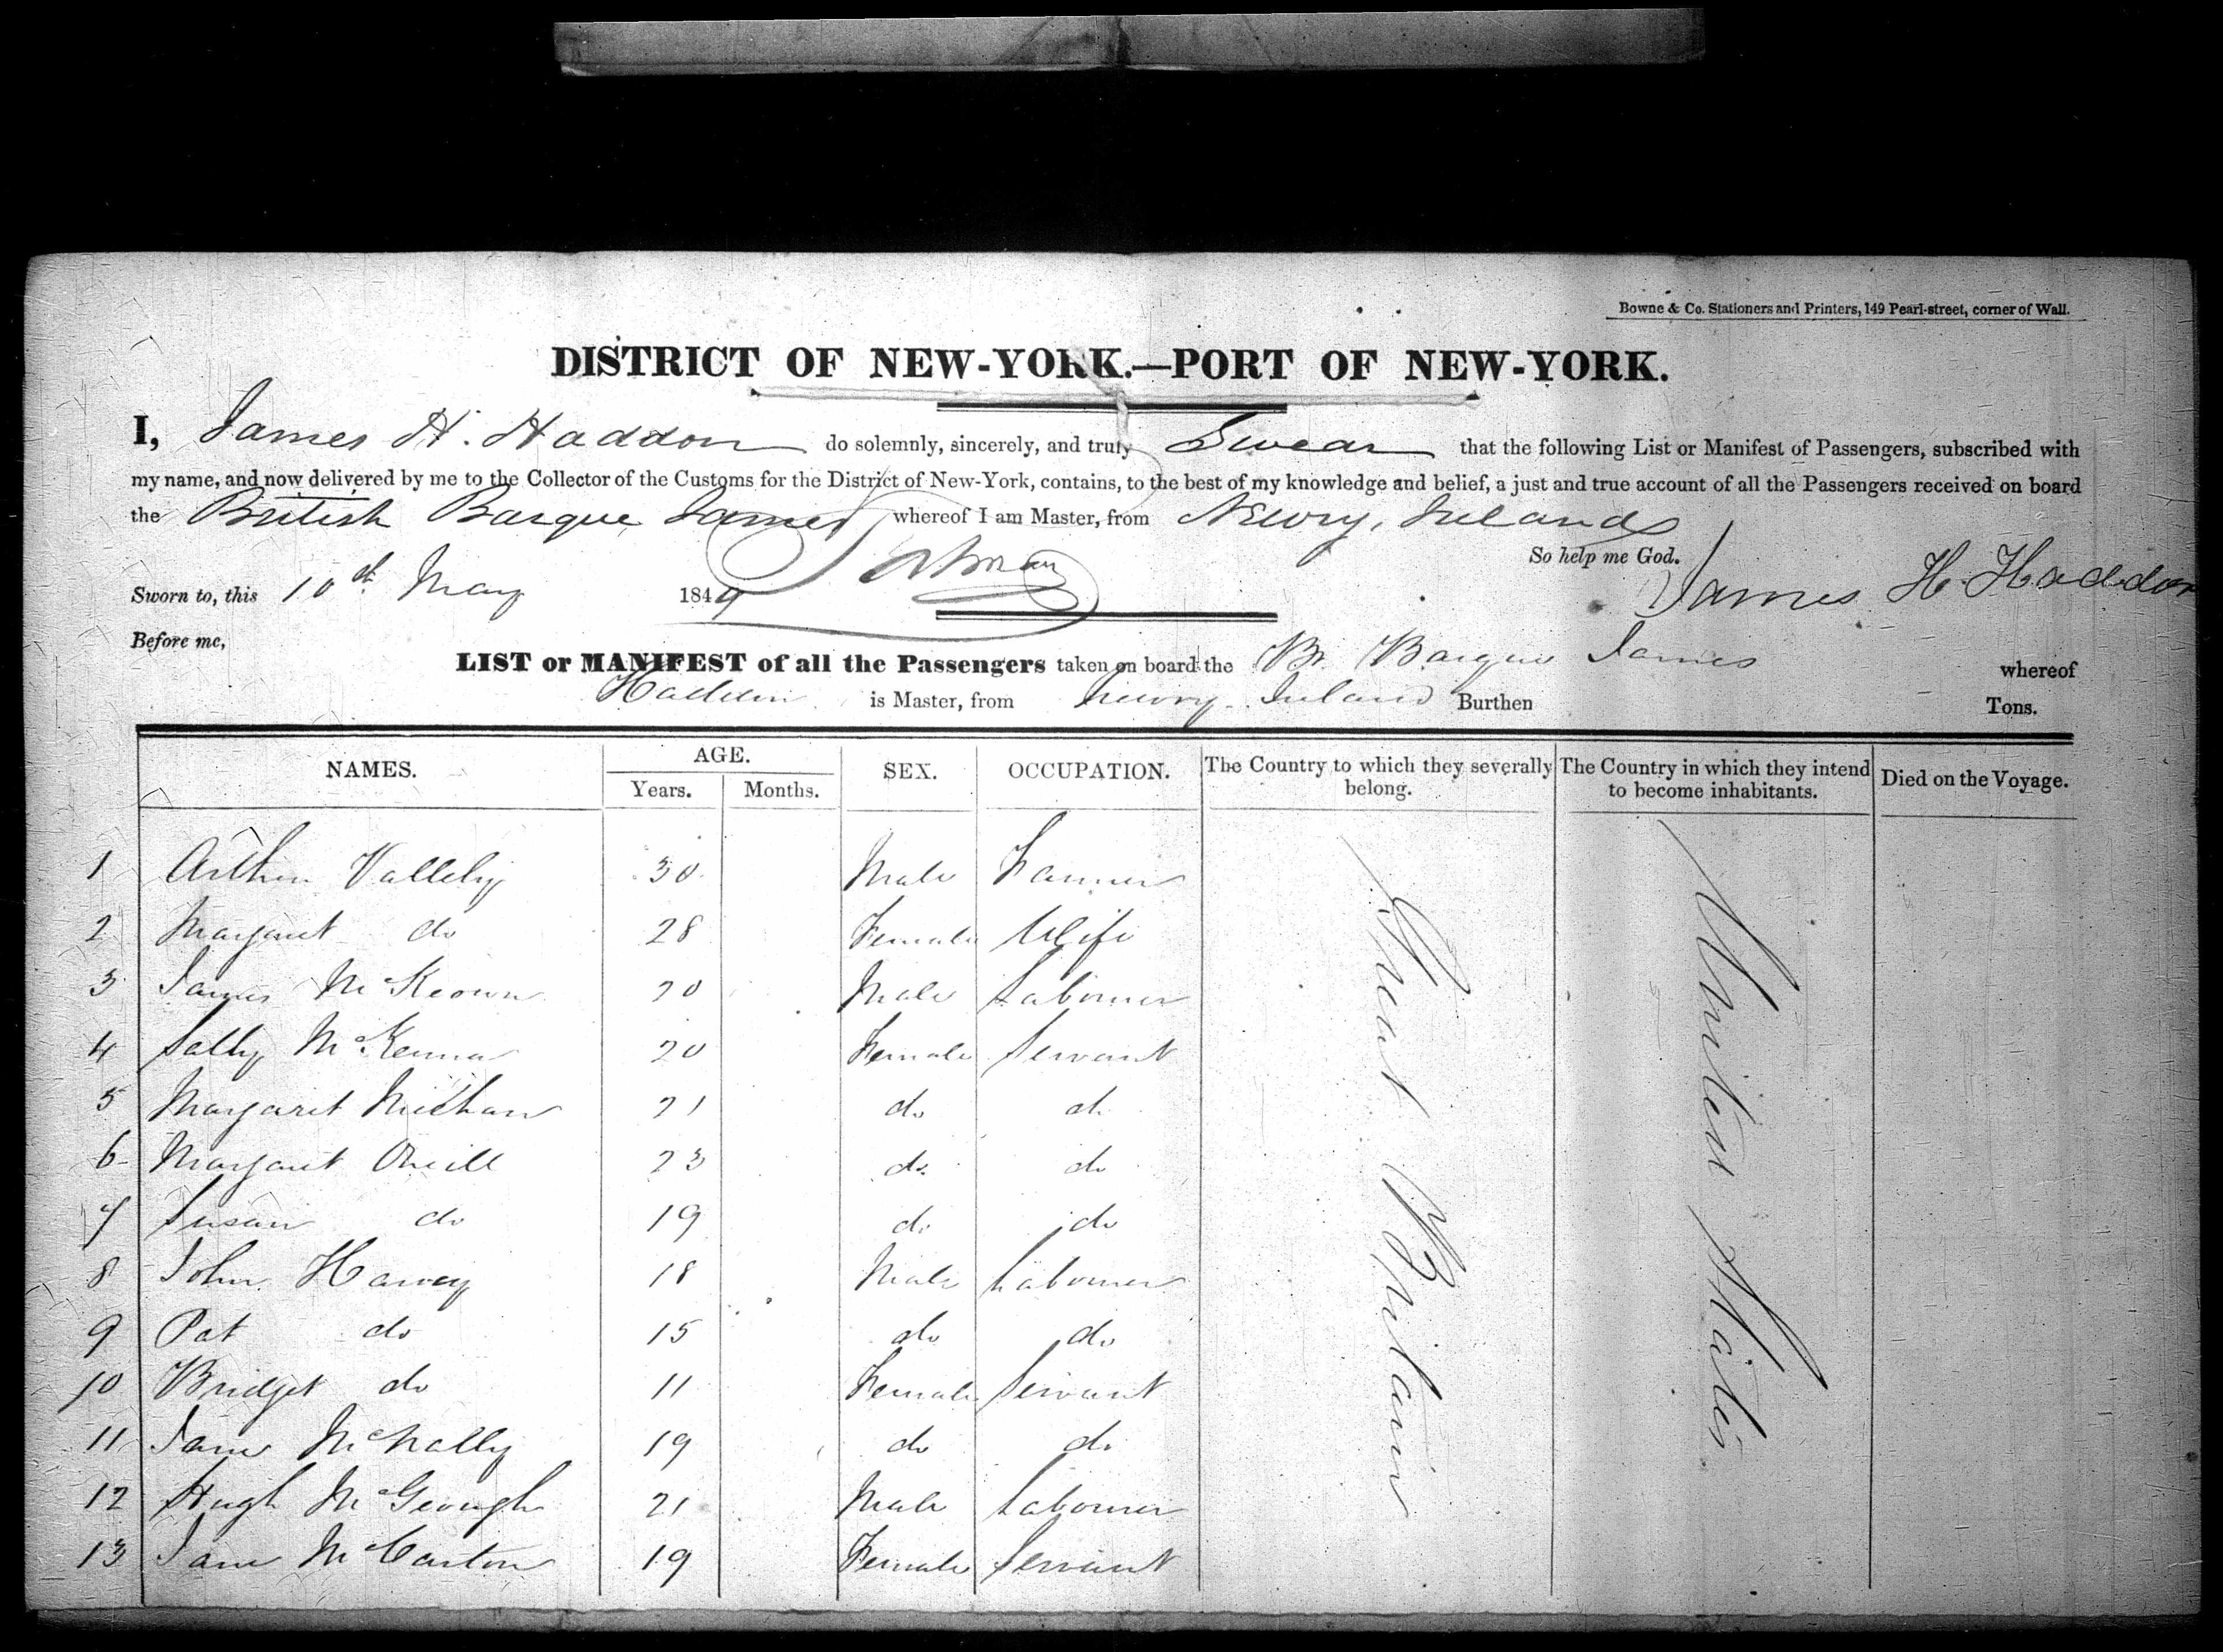 Bowne & Co. Stationers and Printers, 149 Pearl-street, corner of Wall.
DISTRICT OF NEW-YORK.—PORT OF NEW-YORK.
I, James H. Haddon do solemnly, sincerely, and truly Swear that the following List or Manifest of Passengers, subscribed with
my name, and now delivered by me to the Collector of the Customs for the District of New-York, contains, to the best of my knowledge and belief, a just and true account of all the Passengers received on board
the British Barque James whereof I am Master, from Newry, Ireland
So help me God.
Sworn to, this 10th May 1849 James H Haddon
Before me,
LIST or MANIFEST of all the Passengers taken on board the Br. Barque James whereof
Haddon is Master, from Newry Ireland Burthen Tons.
NAMES. AGE. SEX. OCCUPATION. The Country to which they severally belong. The Country in which they intend to become inhabitants. Died on the Voyage.
Years. Months.
1 Arthur Vallely 30 Male Farmer
2 Margaret do 28 Female Wife
3 James McKeown 20 Male Labourer
4 Sally McKenna 20 Female Servant
5 Margaret Meehan 21 do do
6 Margaret Oneill 23 do do
7 Susan do 19 do do
8 John Harvey 18 Male Labourer
9 Pat do 15 do do
10 Bridget do 11 Female Servant
11 Jane McNally 19 do do
12 Hugh McGeough 21 Male Labourer
13 Jane McCarton 19 Female Servant
Great Britain
United States